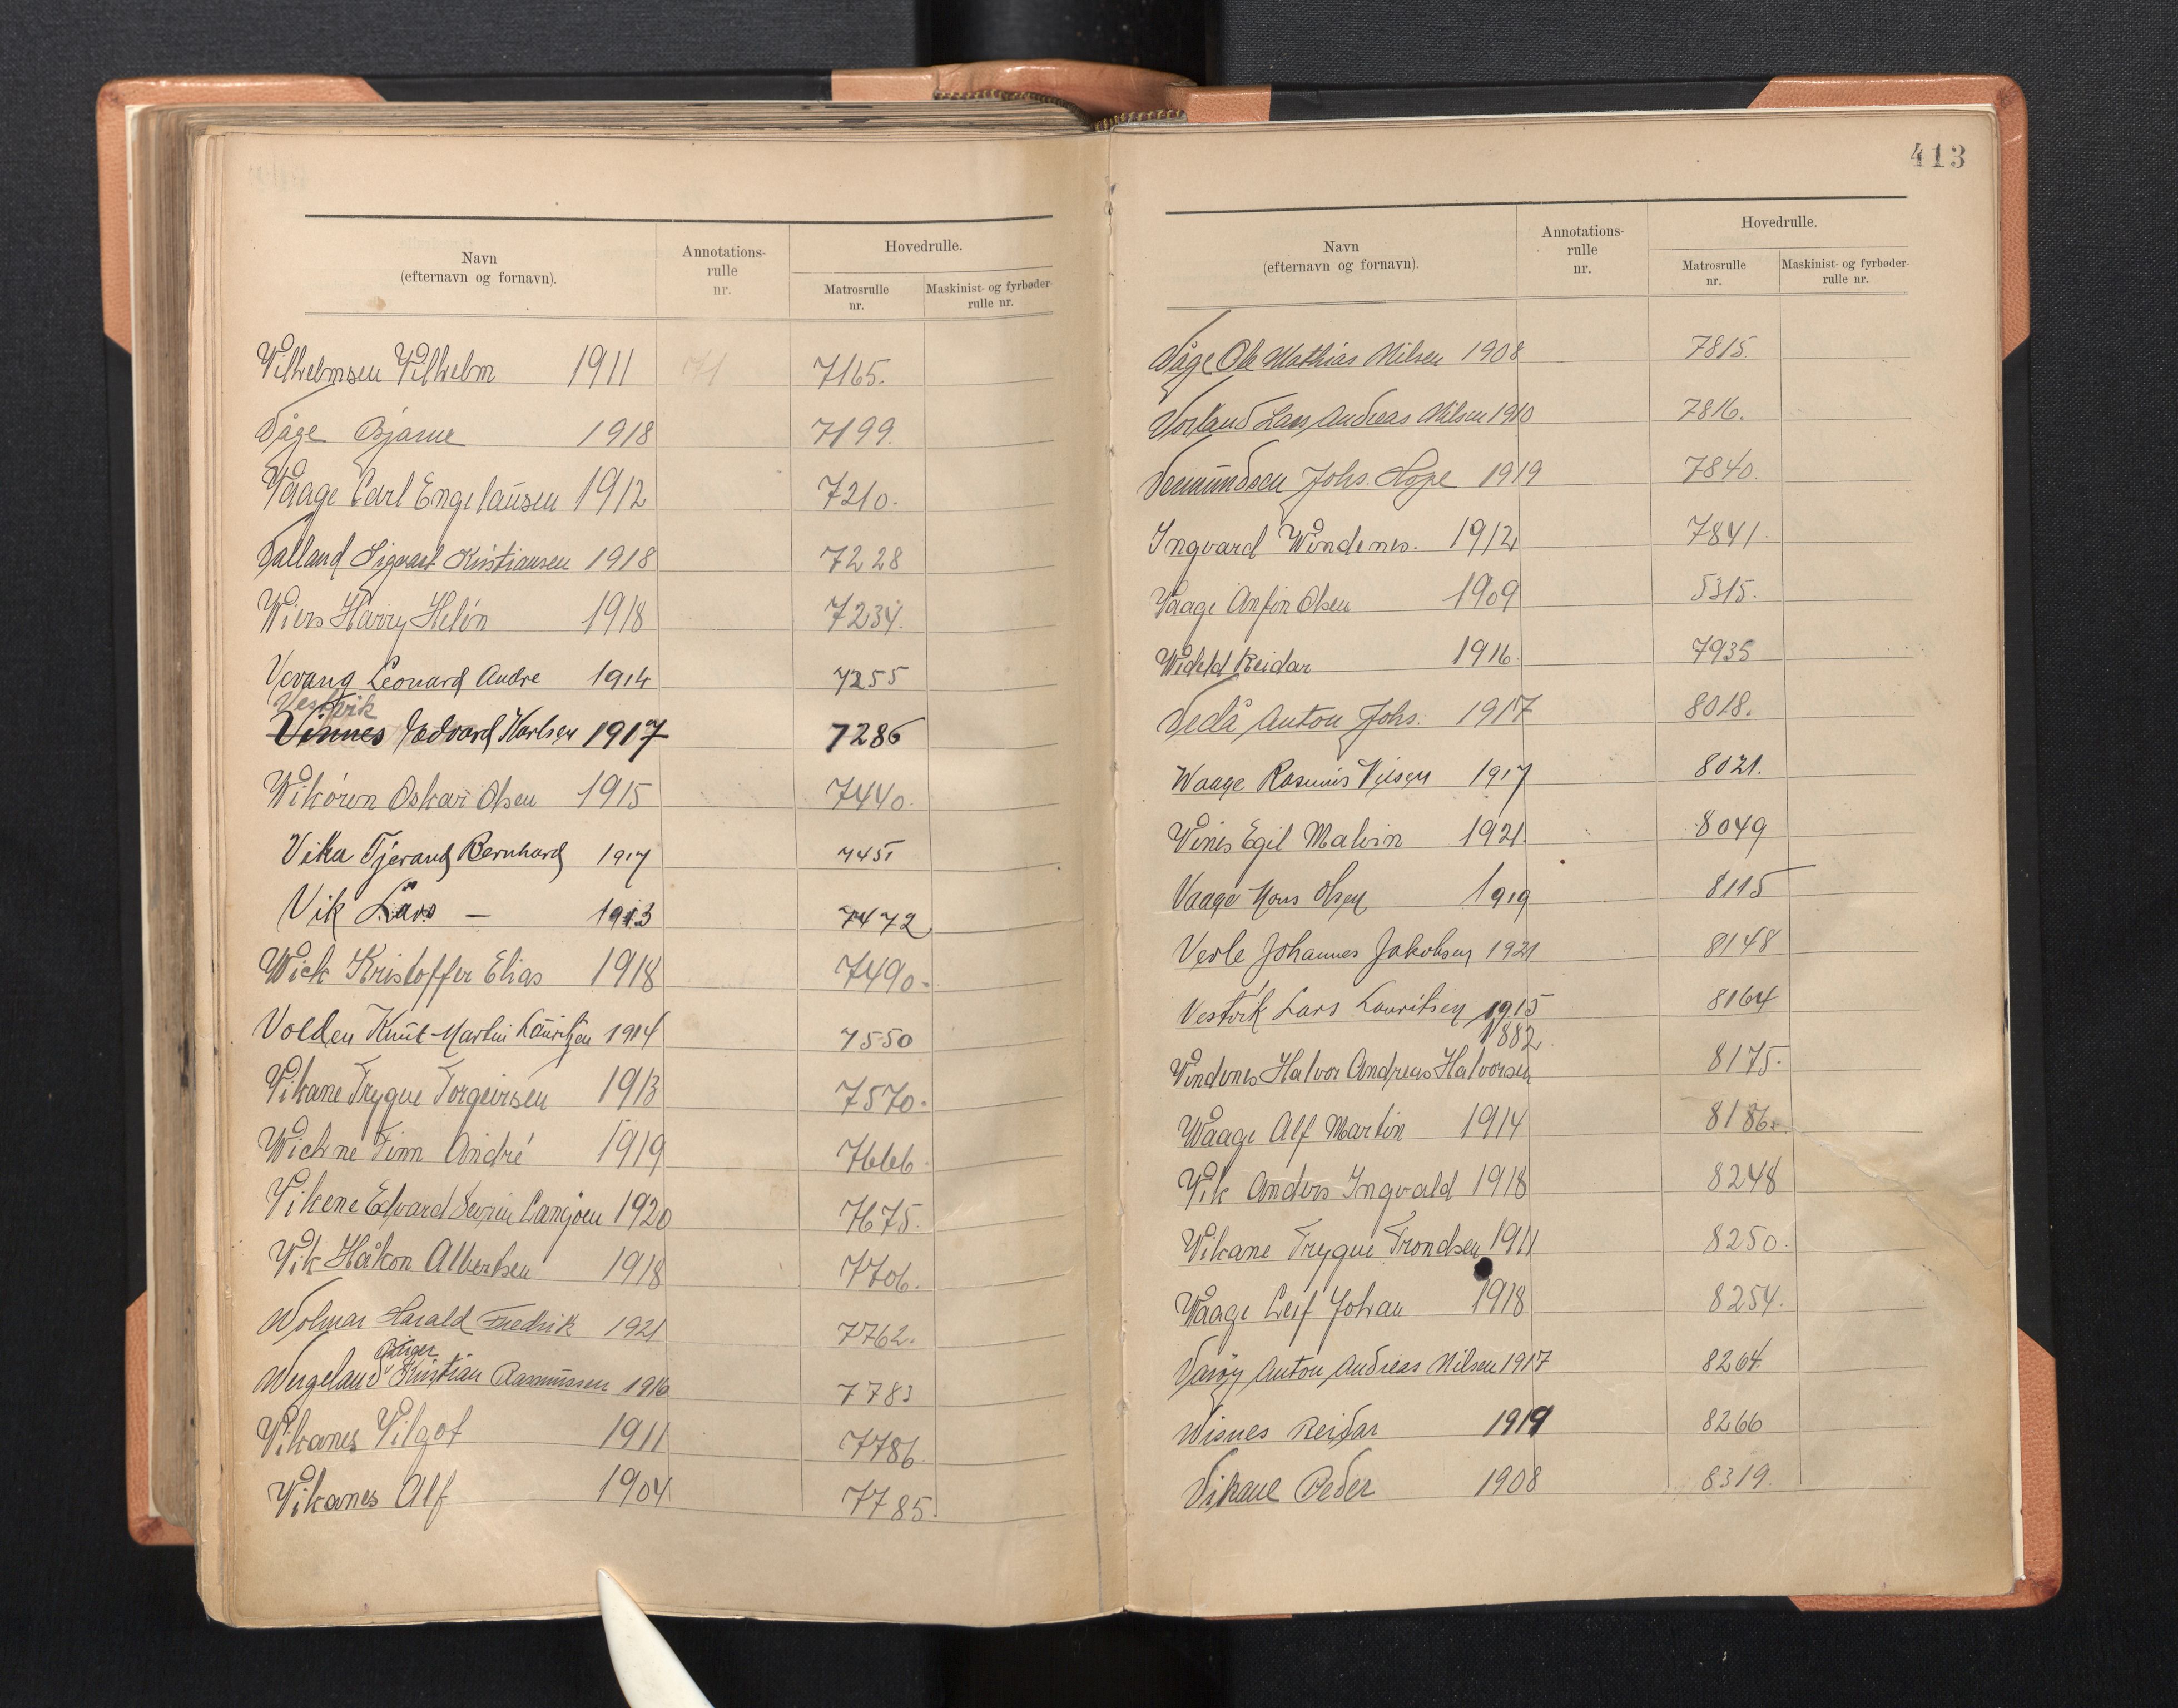 Navn
(efternavn og fornavn).
Annotations-
rulle
nr.
Hovedrulle.
Matrosrulle
nr.
Maskinist- og fyrbøder-
rulle nr.
Wilhelmsen Vilhelm 1911 71 7165.
Våge Bjarne 1918 7199.
Vaage Carl Engelausen 1912 7210.
Valland Sigvart Kristiansen 1918 7228
Wiers Harry Helén 1918 7234.
Vevang Leonard Andre 1914 7255
Vestvik
Vinnes Edvard Karlsen 1917 7286
Wikören Oskar Olsen 1915 7440.
Vika Tjerand Bernhard 1917 7451
Vik Lars — 1913 7472
Wick Kristoffer Elias 1918 7490.
Volden Knut-Martin Lauritzen 1914 7550
Vikane Trygve Torgeirsen 1913 7570.
Wichne Finn André 1919 7666.
Vikene Edvard Sevrin Langøen 1920 7675.
Vik Håkon Albertsen 1918 7706.
Wolmar Harald Fredrik 1921 7762.
Birger
Wergeland Kristian Rasmussen 1916 7783
Vikanes Vilgot 1911 7786.
Vikanes Alf 1904 7785.
413
Navn
(efternavn og fornavn).
Annotations-
rulle
nr.
Hovedrulle.
Matrosrulle
nr.
Maskinist- og fyrbøder-
rulle nr.
Våge Ole Mathias Nilsen 1908 7815.
Vorland Lars Andreas Nilsen 1910 7816.
Vermundsen Johs. Hope 1919 7840.
Ingvard Windenes. 1912 7841.
Vaage Anfin Olsen 1909 5315.
Wideld Reidar 1916. 7935
Vedå Anton Johs. 1917 8018.
Waage Rasmus Nilsen 1917 8021.
Vines Egil Malvin 1921. 8049
Vaage Mons Olsen 1919 8115
Verle Johannes Jakobsen 1921 8148
Vestvik Lars Lauritsen 1915 8164
1882.
Vindenes Halvor Andreas Halvorsen 8175.
Waage Alf Martin 1914 8186.
Vik Anders Ingvald 1918 8248
Vikane Trygve Trondsen 1911 8250.
Vaage Leif Johan 1918 8254.
Varøy Anton Andreas Nilsen 1917 8264.
Wisnes Reidar 1919 8266
Vikane Peder 1908 8319.